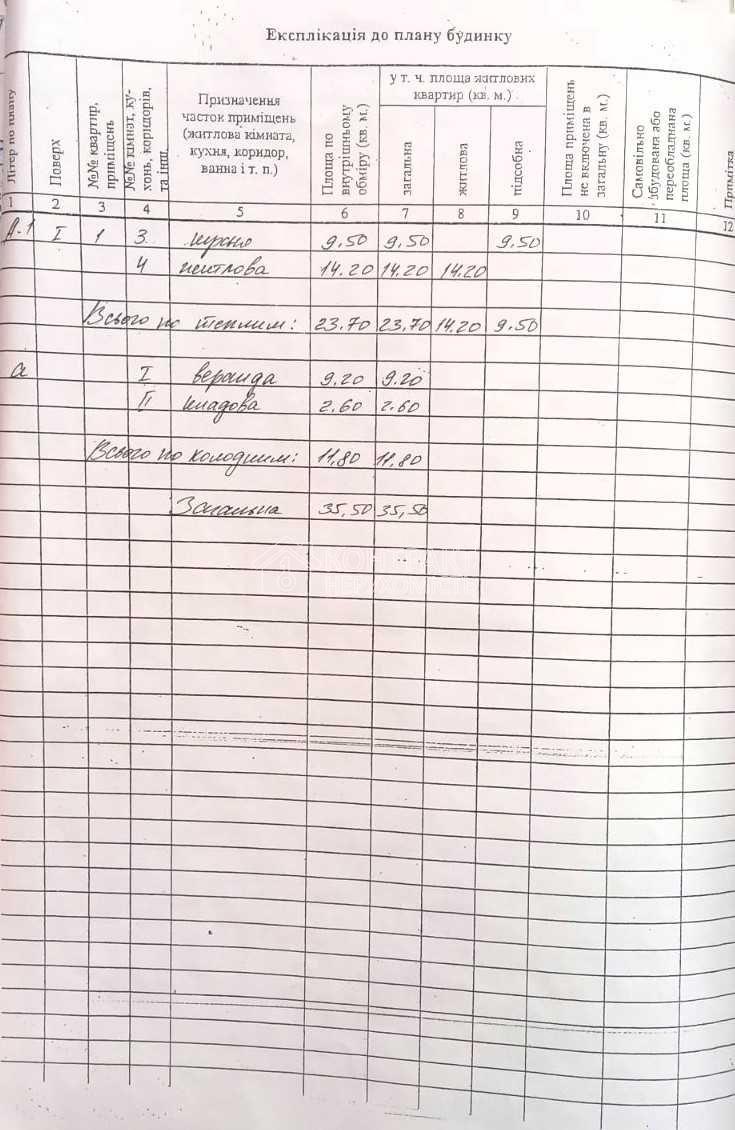 Експлікація до плану будинку
Літер по плану
Поверх
№№ квартир, приміщень
№№ кімнат, кухонь, коридорів, та інш.
Призначення
часток приміщень
(житлова кімната,
кухня, коридор,
ванна і т. п.)
Площа по внутрішньому обміру (кв. м.)
у т. ч. площа житлових
квартир (кв. м.)
загальна
житлова
підсобна
Площа приміщень не включена в загальну (кв. м.)
Самовільно збудована або переобладнана площа (кв. м.)
Примітка
1 2 3 4 5 6 7 8 9 10 11 12
А-1 I 1 3 кухня 9,50 9,50 9.50
4 житлова 14.20 14.20 14.20
Всього по теплим: 23.70 23,70 14.20 9.50
а I веранда 9.20 9.20
II кладова 2.60 2.60
Всього по холодним: 11,80 11,80
Загальна 35,50 35,50
КОНТРАКТ
НЕРУХОМІСТЬ